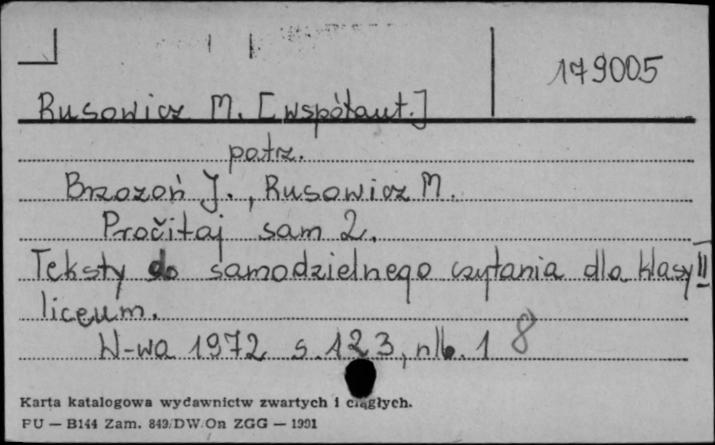 179005
Rusowicz M. [współaut.]
patrz.
Brzozoń J., Rusowicz M.
Pročitaj sam 2.
Teksty do samodzielnego czytania dla klasy II
liceum.
W-wa 1972 s. 123, nlb. 1 8
Karta katalogowa wydawnictw zwartych i ciągłych.
PU — B144 Zam. 849/DW/On ZGG — 1991